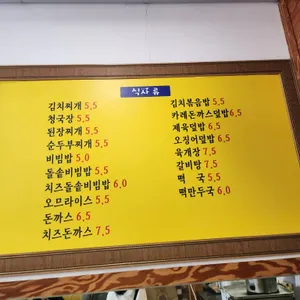 식사 류
김치찌개 5,5
청국장 5,5
된장찌개 5,5
순두부찌개 5,5
비빔밥 5,0
돌솥비빔밥 5,5
치즈돌솥비빔밥 6,0
오므라이스 5,5
돈까스 6,5
치즈돈까스 7,5
김치볶음밥 5,5
카레돈까스덮밥 6,5
제육덮밥 6,5
오징어덮밥 6,5
육개장 7,5
갈비탕 7,5
떡 국 5,5
떡만두국 6,0